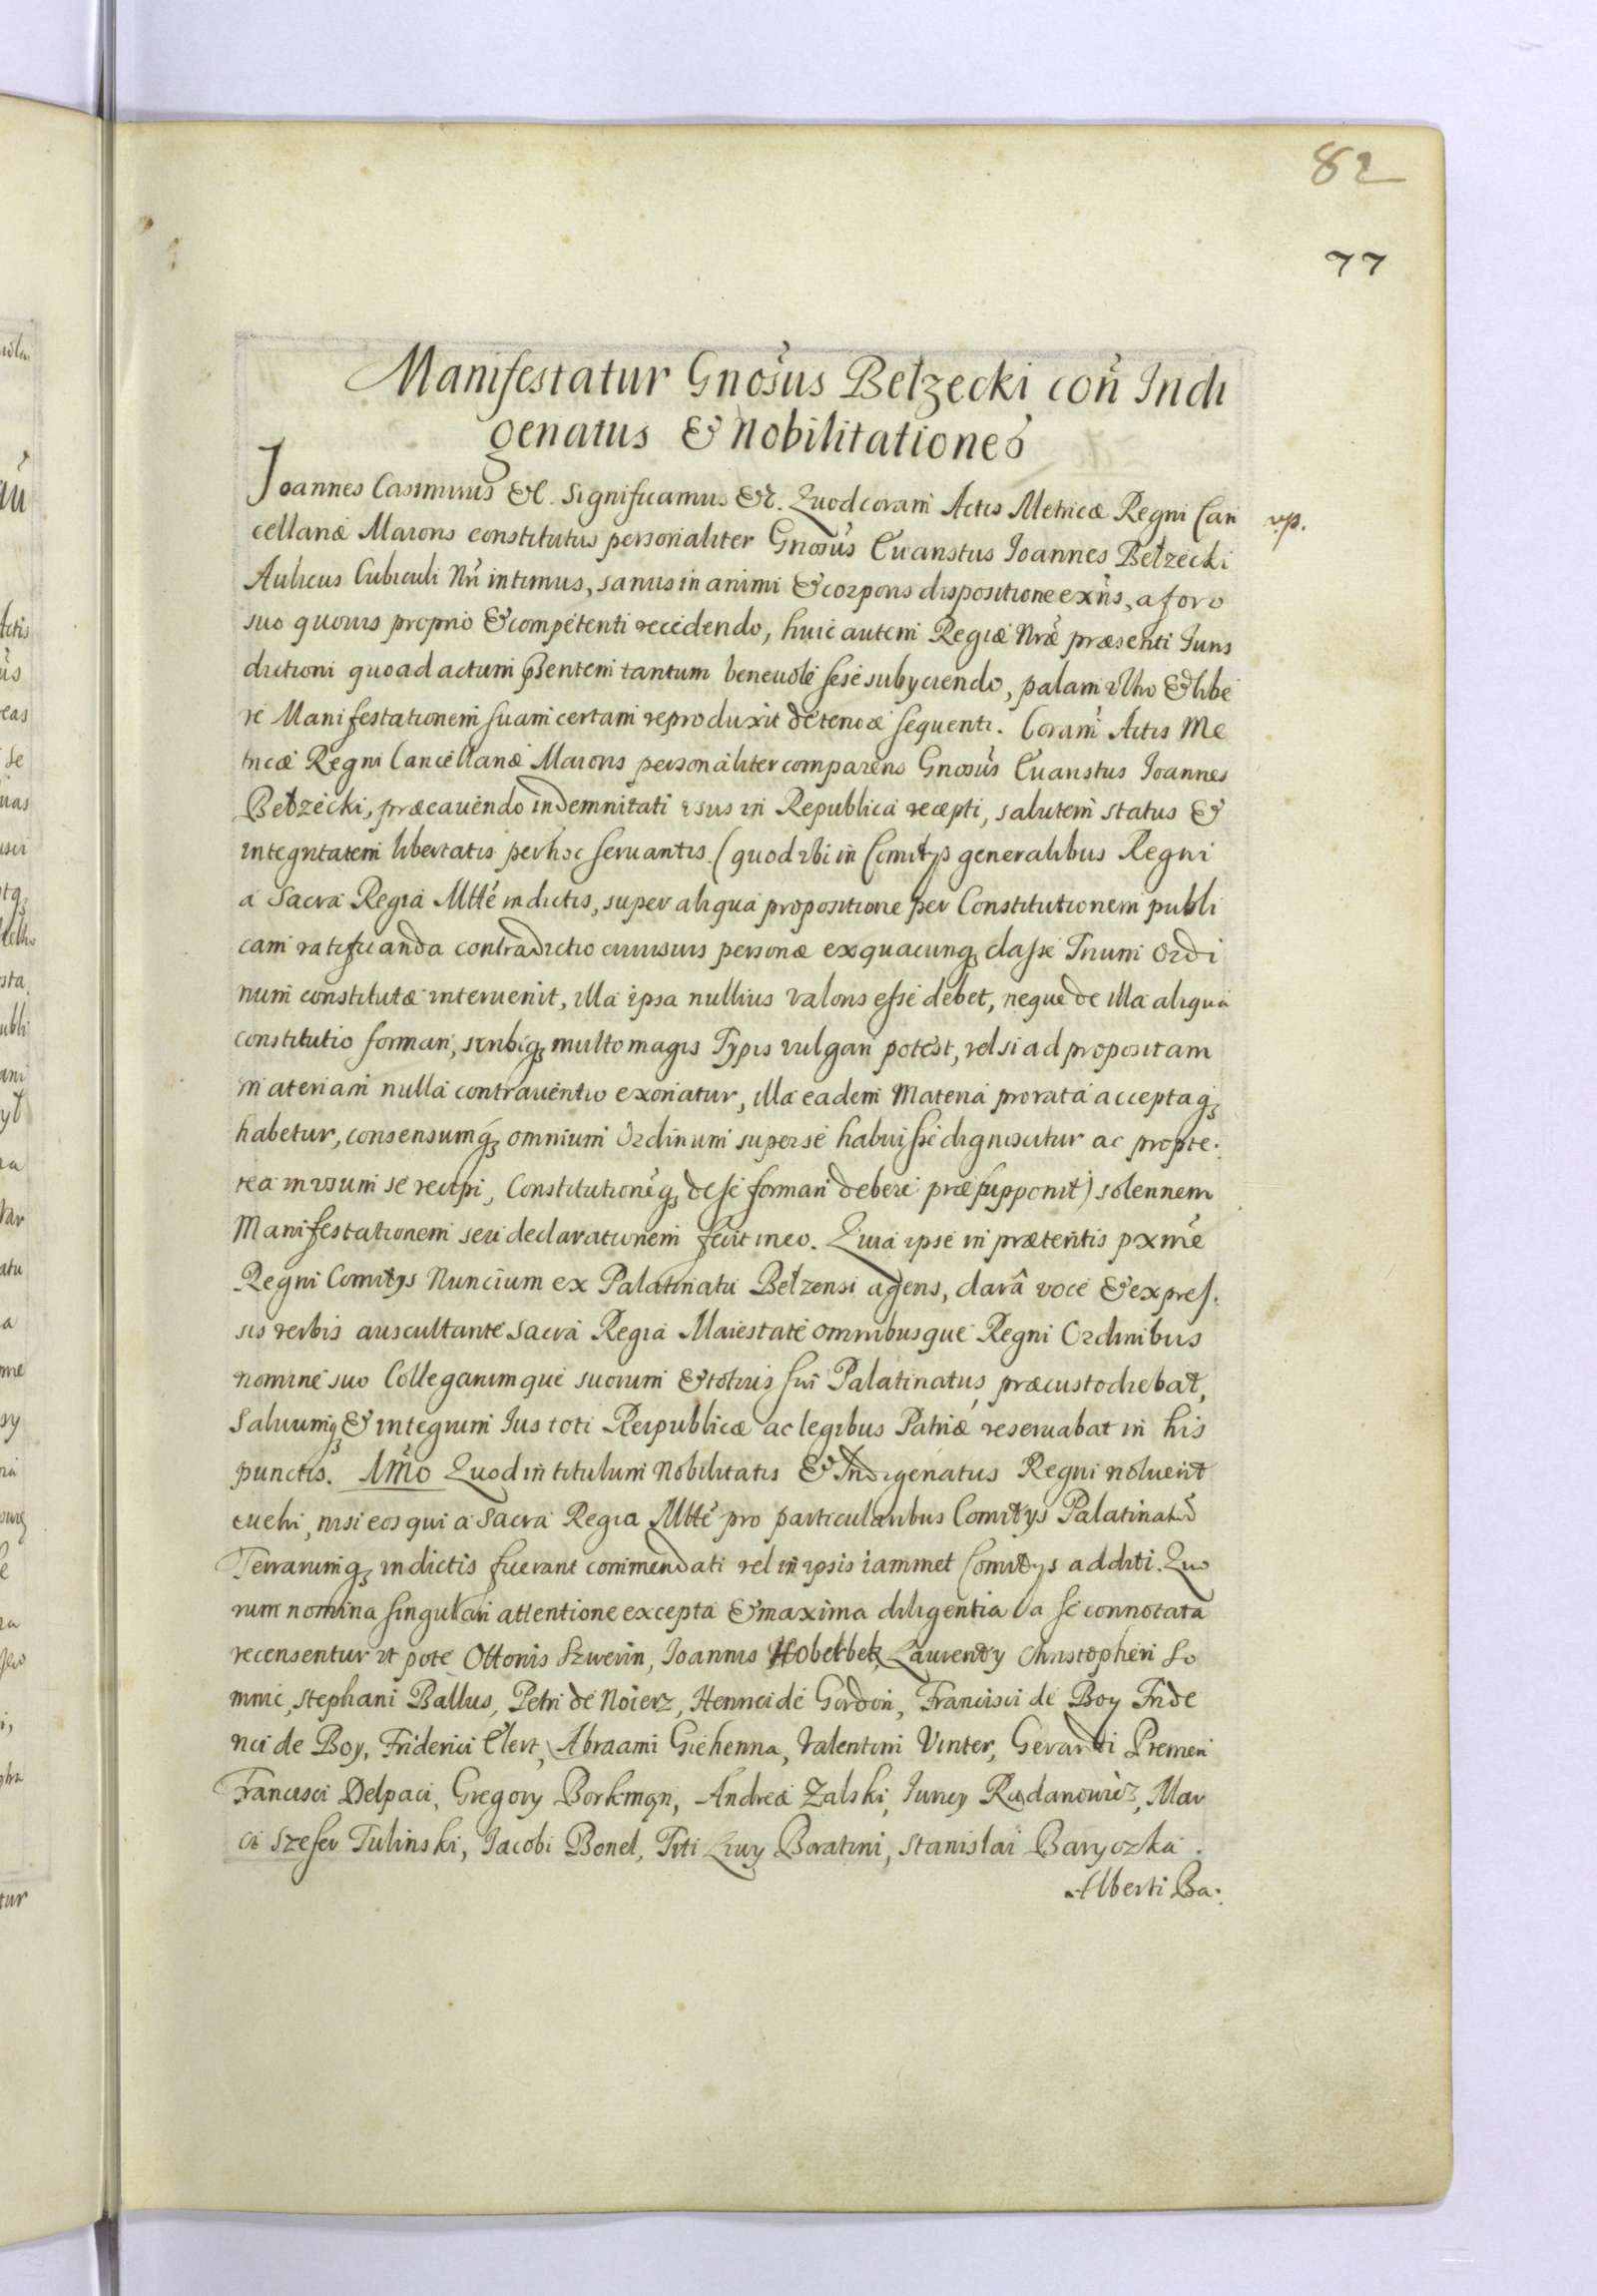 82
77
Manifestatur Gnosus Bełzecki con Indi
genatus & Nobilitationes
Joannes Casimirus &c. Significamus &c. Quod coram Actis Metricæ Regni Can
vp.
cellariæ Maioris constitutus personaliter Gnosus Evaristus Joannes Bełzecki
Aulicus Cubiculi Nri intimus, sanus in animi & corporis dispositione exns, a foro
suo quovis proprio & competenti recedendo, huic autem Regiæ Nræ præsenti Juris
dictioni quo ad actum pntem tantum benevole sese subyciendo, palam vltro & libe
re Manifestationem suam certam reproduxit de tenore sequenti. Coram Actis Me
tricæ Regni Cancellariæ Maioris personaliter comparens Gnosus Evaristus Joannes
Bełzecki, præcavendo indemnitati vsus in Republica recepti, salutem status &
integritatem libertatis per hoc servantis (quod vbi in Comitys generalibus Regni
a Sacra Regia Mtte indictis, super aliqua propositione per Constitutionem publi
cam ratificanda contradictio cuiusvis personæ ex quacunq classe Trium Ordi
num constitutæ intervenit, illa ipsa nullius valoris esse debet, neque de illa aliqua
constitutio formari, scribiq multo magis Typis vulgari potest, vel si ad propositam
materiam nulla contraventio exoriatur, illa eadem Materia pro rata acceptaq
habetur, consensumq omnium Ordinum super se habuisse dignoscitur ac propte.
rea in vsum se recipi, Constitutioneq de se formari debere præsupponit) solennem
Manifestationem seu declarationem fecit in eo. Quia ipse in præteritis pxme
Regni Comitys Nuncium ex Palatinatu Bełzensi agens, clarâ voce & expres.
sis verbis auscultante Sacra Regia Maiestate omnibusque Regni Ordinibus
nomine suo Collegarumque suorum & totius sui Palatinatus, præcustodiebat,
Salvumq & integrum Jus toti Reipublicæ ac legibus Patriæ reservabat in his
punctis. 1mo Quod in titulum Nobilitatis & Indigenatus Regni noluerit
evehi, nisi eos qui a Sacra Regia Mtte pro particularibus Comitys Palatinatus
Terrarumq indictis fuerant commendati vel in ipsis iammet Comitys additi. Quo
rum nomina singulari attentione excepta & maxima diligentia a se connotata
recensentur vt pote Ottonis Szwerin, Joannis Hobełbek, Laurenty Christopheri So
mnic, Stephani Ballus, Petri de Noierz, Henrici de Gordon, Francisci de Boy Fride
rici de Boy, Friderici Elert, Abraami Giehenna, Valentini Vinter, Gerardi Premeri
Francisci Delpaci, Gregory Borkman, Andreæ Zalski, Jurey Rudanowicz, Mar
ci Szefer Tulinski, Jacobi Bonel, Titi Livy Boratini, Stanislai Baryczka.
Alberti Ba.